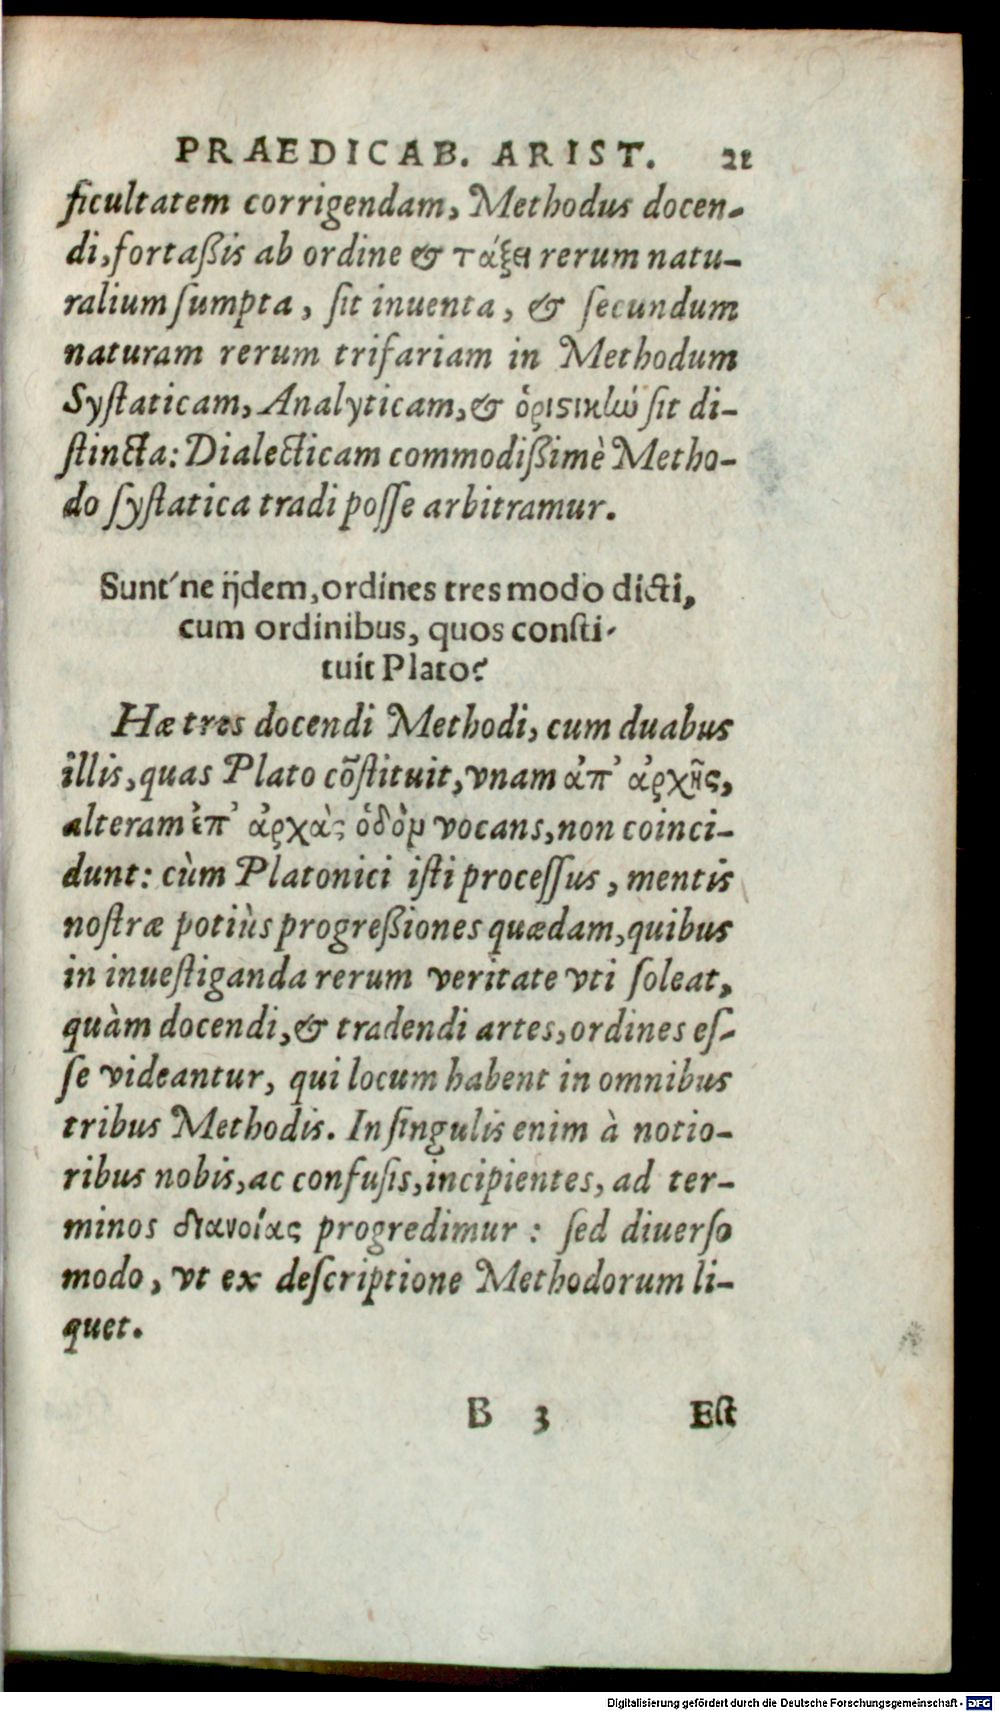 PRAEDICAB. ARIST. 21
ficultatem corrigendam, Methodus docen-
di, fortaßis ab ordine & τάξει rerum natu-
ralium ſumpta, ſit inuenta, & ſecundum
naturam rerum trifariam in Methodum
Syſtaticam, Analyticam, & ὁριστικὼ ſit di-
ſtincta: Dialecticam commodißimè Metho-
do ſyſtatica tradi poſſe arbitramur.
Sunt'ne ijdem, ordines tres modo dicti,
cum ordinibus, quos conſti-
tuit Plato?
Hæ tres docendi Methodi, cum duabus
illis, quas Plato cōſtituit, vnam ἀπ' ἀρχῆς,
alteram ἐπ' ἀρχὰς ὁδὸν vocans, non coinci-
dunt: cùm Platonici iſti proceſſus, mentis
noſtræ potiùs progreßiones quædam, quibus
in inueſtiganda rerum veritate vti ſoleat,
quàm docendi, & tradendi artes, ordines eſ-
ſe videantur, qui locum habent in omnibus
tribus Methodis. In ſingulis enim à notio-
ribus nobis, ac confuſis, incipientes, ad ter-
minos διανοίας progredimur: ſed diuerſo
modo, vt ex deſcriptione Methodorum li-
quet.
B 3 Eſt
Digitalisierung gefördert durch die Deutsche Forschungsgemeinschaft - DFG